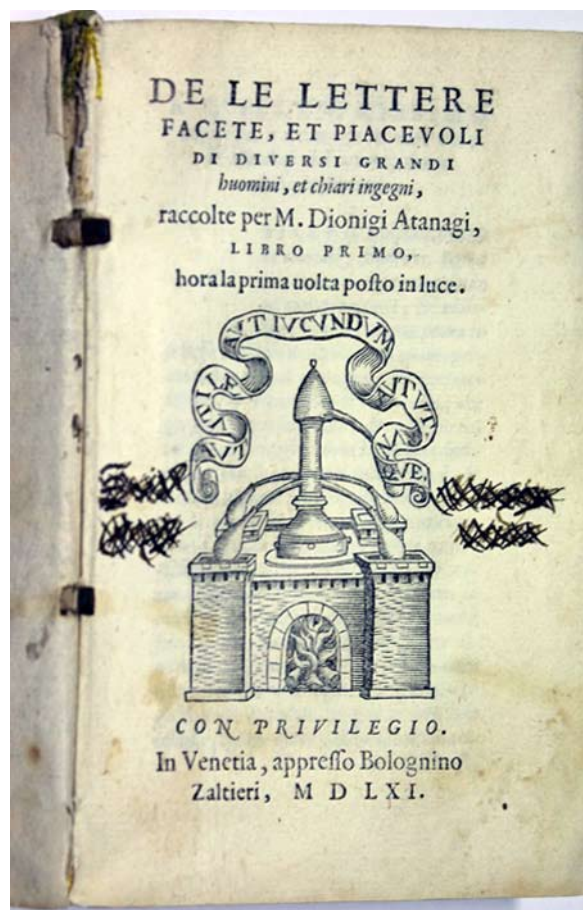 DE LE LETTERE
FACETE, ET PIACEVOLI
DI DIVERSI GRANDI
huomini, et chiari ingegni,
raccolte per M. Dionigi Atanagi,
LIBRO PRIMO,
hora la prima uolta posto in luce.
AUT UTILE AUT IVCVNDVM AUT UTRVNQVE
CON PRIVILEGIO.
In Venetia, appresso Bolognino
Zaltieri, M D LXI.